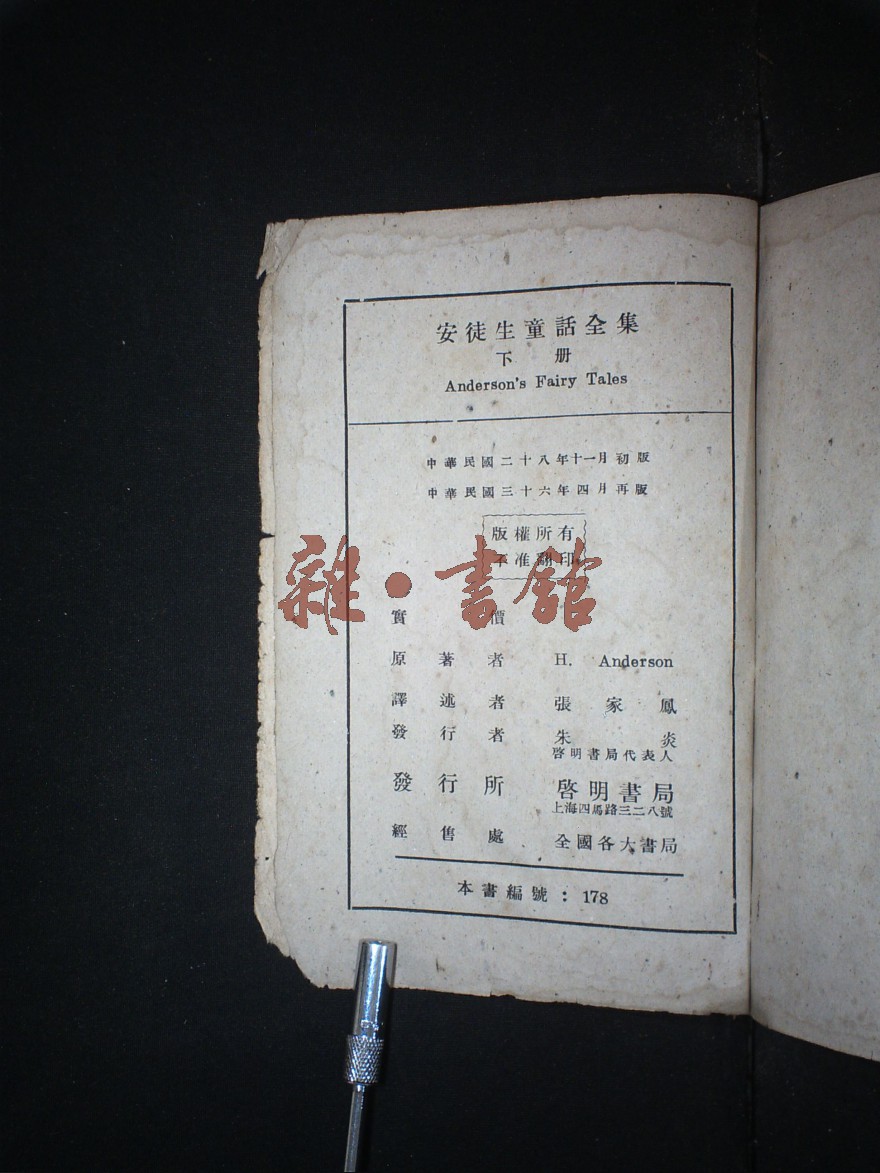 安徒生童話全集
下册
Anderson's Fairy Tales
中華民國二十八年十一月初版
中華民國三十六年四月再版
版權所有
不准翻印
雜·書館
實價
原著者 H. Anderson
譯述者 張家鳳
發行者 朱炎
啓明書局代表人
發行所 啓明書局
上海四馬路三二八號
經售處 全國各大書局
本書編號：178